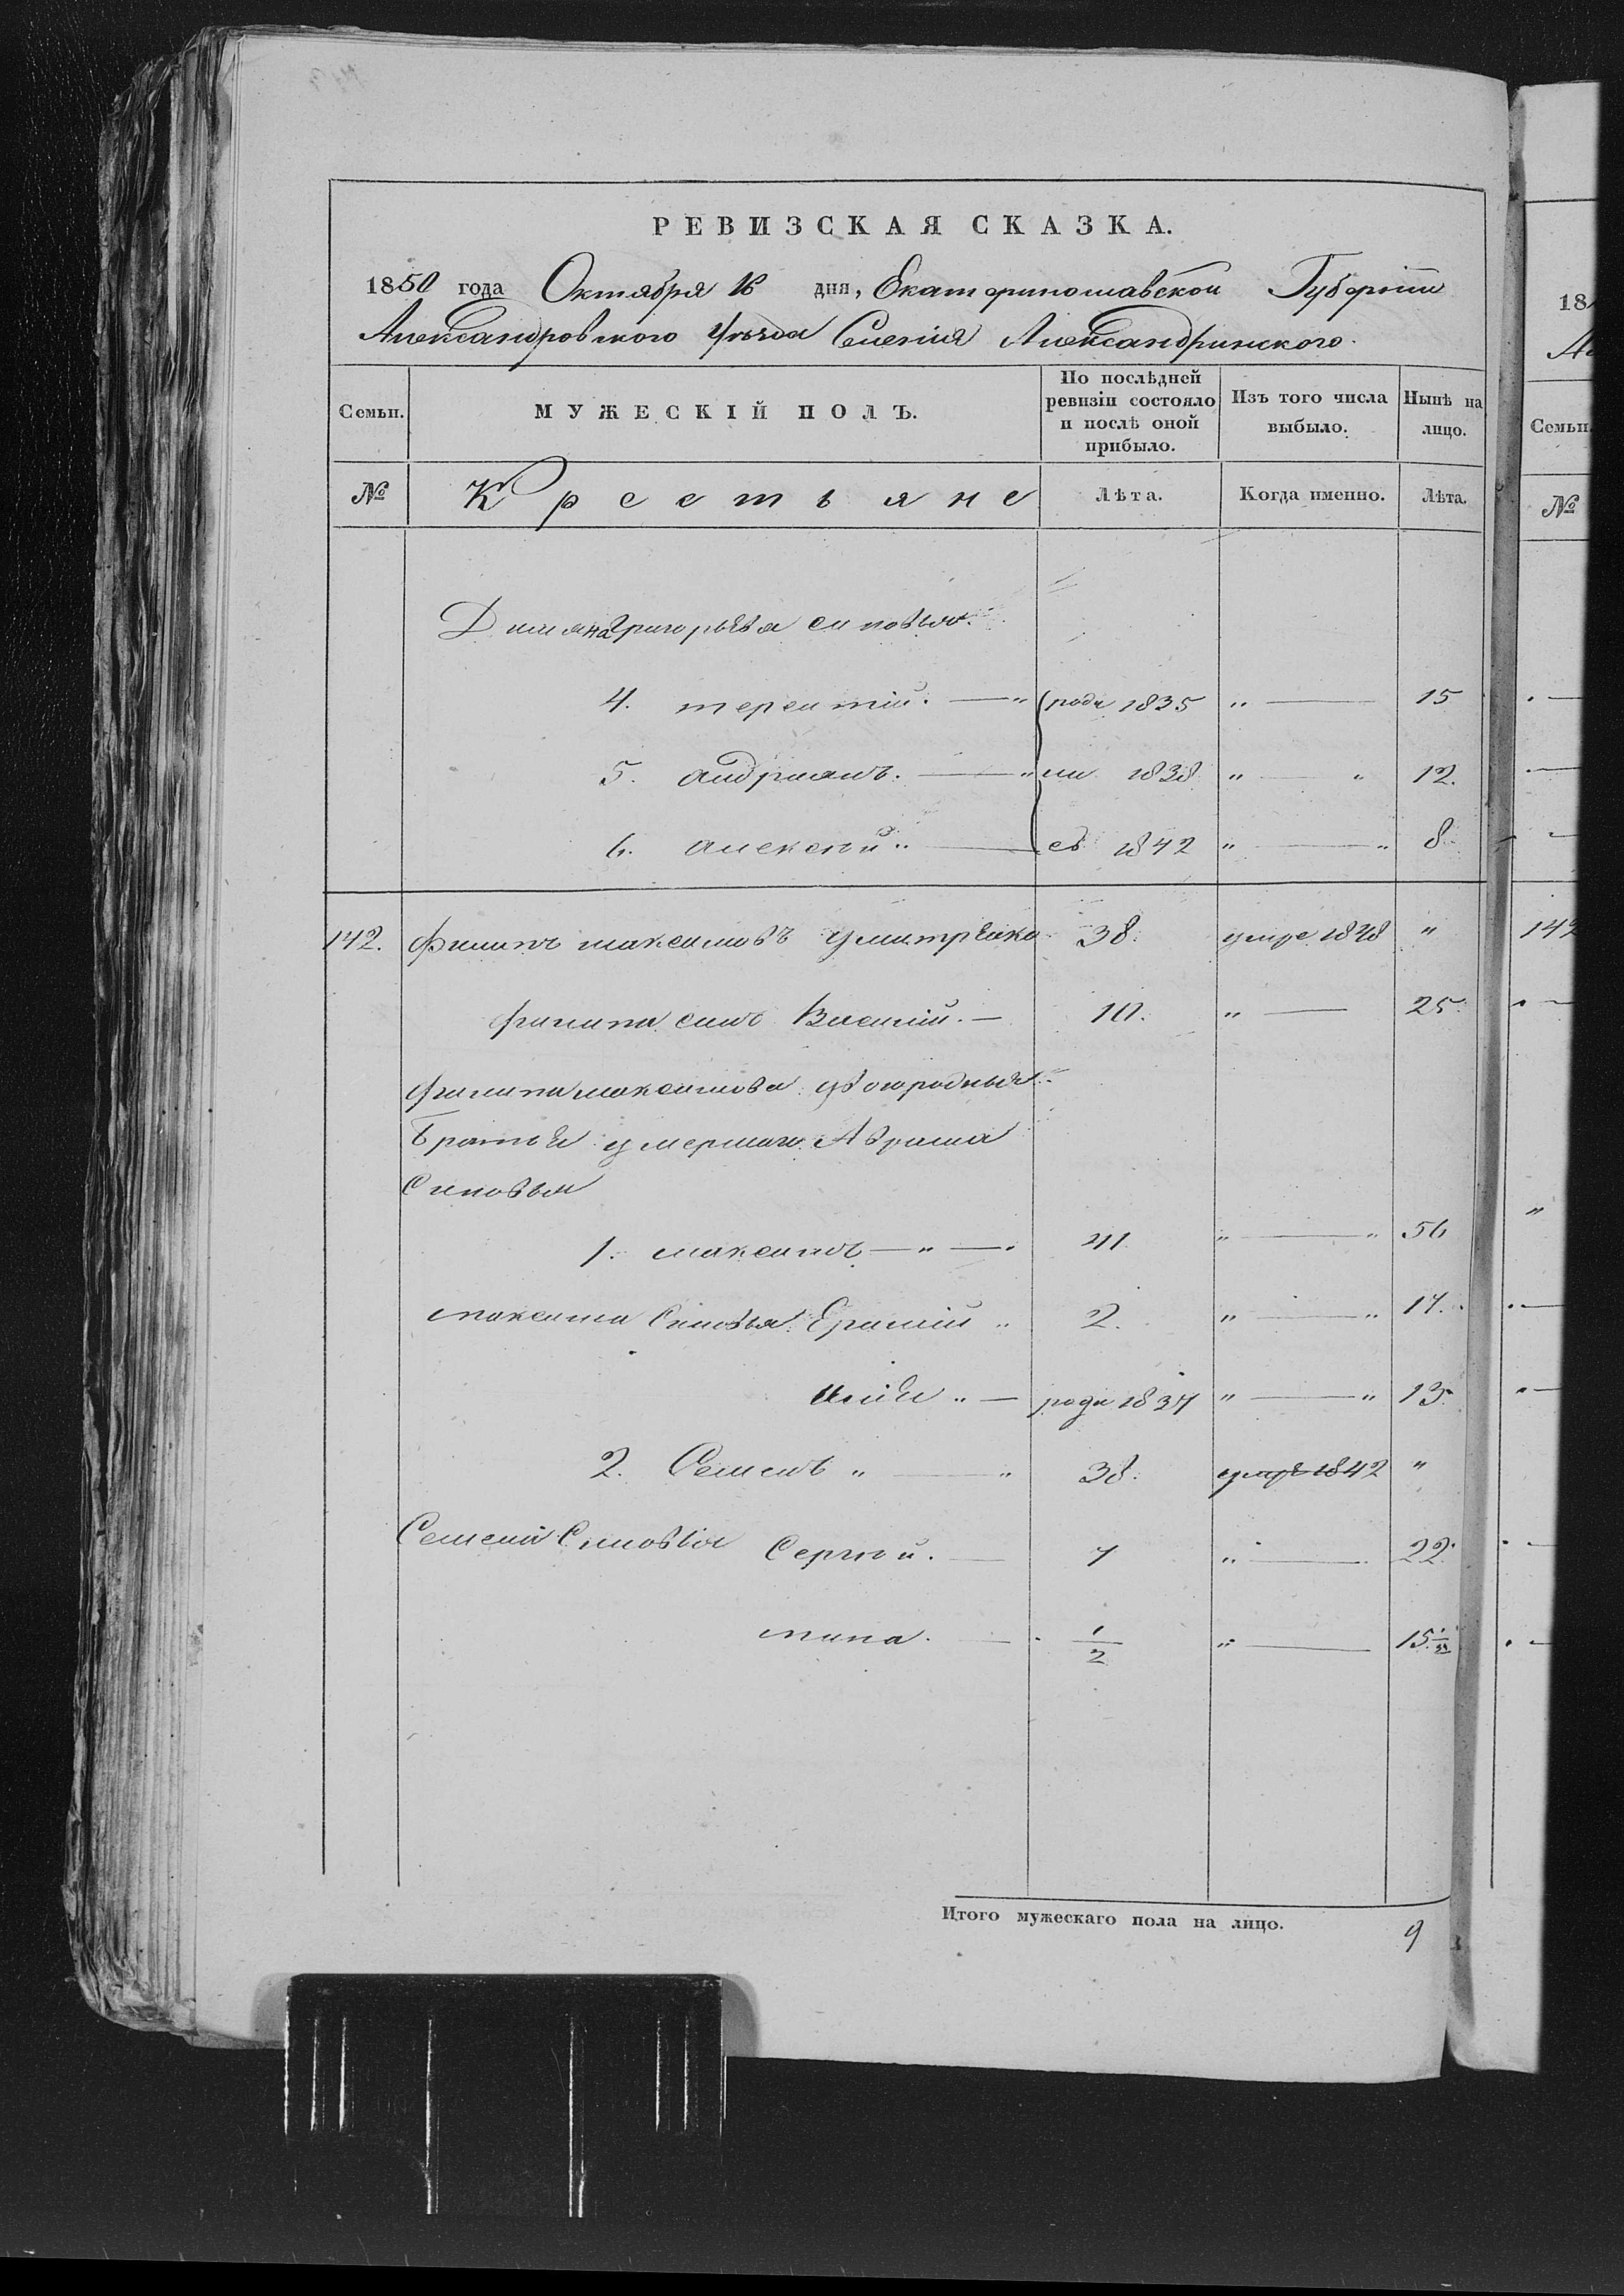 РЕВИЗСКАЯ СКАЗКА.
1850 года Октября 16 дня, Екатеринославской Губернiи
Александровского Уѣзда Селенiя Александринского.
Семьи. МУЖЕСКІЙ ПОЛЪ. По послѣдней ревизіи состояло и послѣ оной прибыло. Изъ того числа выбыло. Нынѣ на лицо.
№ Крестьяне Лѣта. Когда именно. Лѣта.
Демьяна Григорьева синовья.
4. терентій. — " роди 1835 " — 15
5. андриянъ. — " ли 1838 " — " 12.
6. алексѣй " — сь 1842 " — " 8
142. Филипъ максимовъ 38. умре 1848 "
филипа синъ Василий. — 10. " — 25.
филипа максимова двоюродныя
братья умершаго Абрама
Синовья
1. максимъ — " — " 41 " — " 56
максима Синовья Ерамій " 2. " — " 17.
Илья " — роди 1837 " — " 13.
2. Семенъ " — " 38. умре 1842 "
Семена Синовья Сергѣй. — 7 " — 22.
мина. — 1/2 " — 15 1/2
Итого мужескаго пола на лицо. 9
18
Ал
Семьи.
№
142